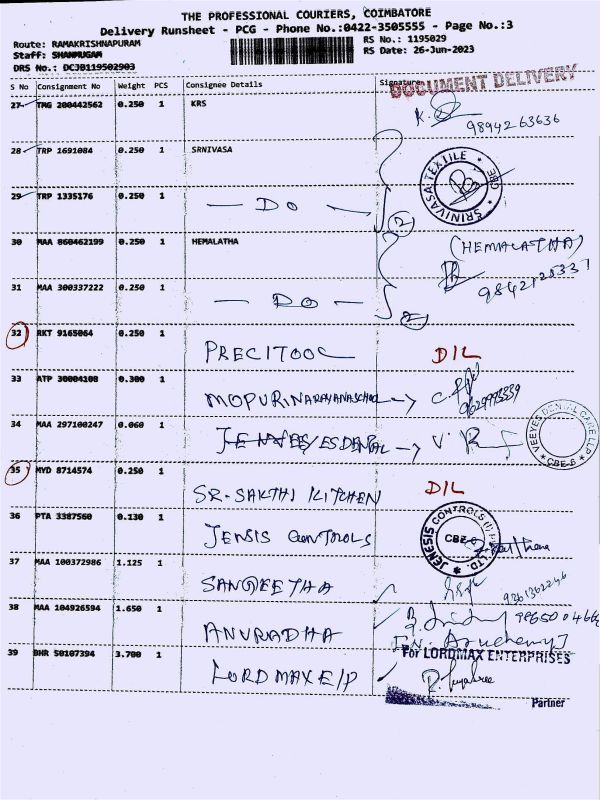 THE PROFESSIONAL COURIERS, COIMBATORE
Delivery Runsheet - PCG - Phone No.:0422-3505555 - Page No.:3
Route: RAMAKRISHNAPURAM
RS No.: 1195029
Staff: SHANMUGAM
RS Date: 26-Jun-2023
DRS No.: DCJB119502903
S No Consignment No Weight PCS Consignee Details Signature
DOCUMENT DELIVERY
27 TMG 200442562 0.250 1 KRS
98942 63636
28 TRP 1691084 0.250 1 SRNIVASA
SRINIVASA TEXTILE * CBE *
29 TRP 1335176 0.250 1 — DO — 2
30 MAA 860462199 0.250 1 HEMALATHA (HEMALATHA)
31 MAA 300337222 0.250 1 — DO — 2
32 RKT 9165064 0.250 1 PRECITOOL D/L
33 ATP 30004108 0.300 1 MOPURI NARAYANA
34 MAA 297100247 0.060 1
VEEYES DENTAL CARE LLP * CBE-6 *
35 MYD 8714574 0.250 1 SR. SAKTHI KITCHEN D/L
36 PTA 3387560 0.130 1 JENSIS CONTROLS
JENESIS CONTROLS (I) P LTD. * CBE-6
37 MAA 100372986 1.125 1 SANGEETHA
38 MAA 104926594 1.650 1 ANURADHA
39 BHR 50107394 3.700 1 LORDMAX E/P
For LORDMAX ENTERPRISES
Partner